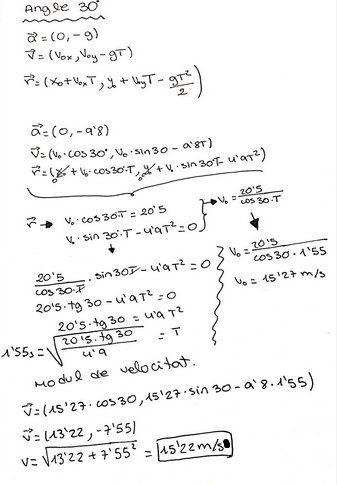 Angle 30°
a⃗ = (0, -g)
v⃗ = (V₀x, V₀y - gT)
r⃗ = (x₀ + V₀xT, y₀ + V₀yT - gT²/2)
a⃗ = (0, -9'8)
v⃗ = (V₀·cos30°, V₀·sin30 - 9'8T)
r⃗ = (x₀ + V₀·cos30·T, y₀ + V₀·sin30T - 4'9T²)
r⃗ → V₀·cos30·T = 20'5
V₀·sin30·T - 4'9T² = 0
→ V₀ = 20'5/cos30·T
20'5/cos30·T · sin30T - 4'9T² = 0
20'5·tg30 - 4'9T² = 0
20'5·tg30 = 4'9T²
1'55s = √(20'5·tg30/4'9) = T
V₀ = 20'5/cos30·1'55
V₀ = 15'27 m/s
Modul de velocitat.
v⃗ = (15'27·cos30, 15'27·sin30 - 9'8·1'55)
v⃗ = (13'22, -7'55)
V = √13'22 + 7'55² = 15'22 m/s